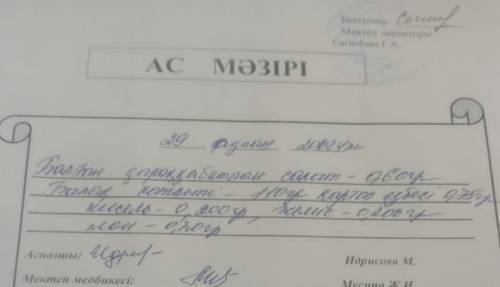 Бекітемін:
Мектеп директоры
Сагинбаева Г.А.
АС МӘЗІРІ
29 ақпан 2024ж
Балғын қырыққабаттан салат - 0,60гр
Балық котлеті - 110гр картоп езбесі 0,75гр
кисель - 0,200гр, жеміс - 0,200гр
нан - 0,20гр
Аспазшы: Идрисова М.
Мектеп медбикесі: Мусина Ж.И.